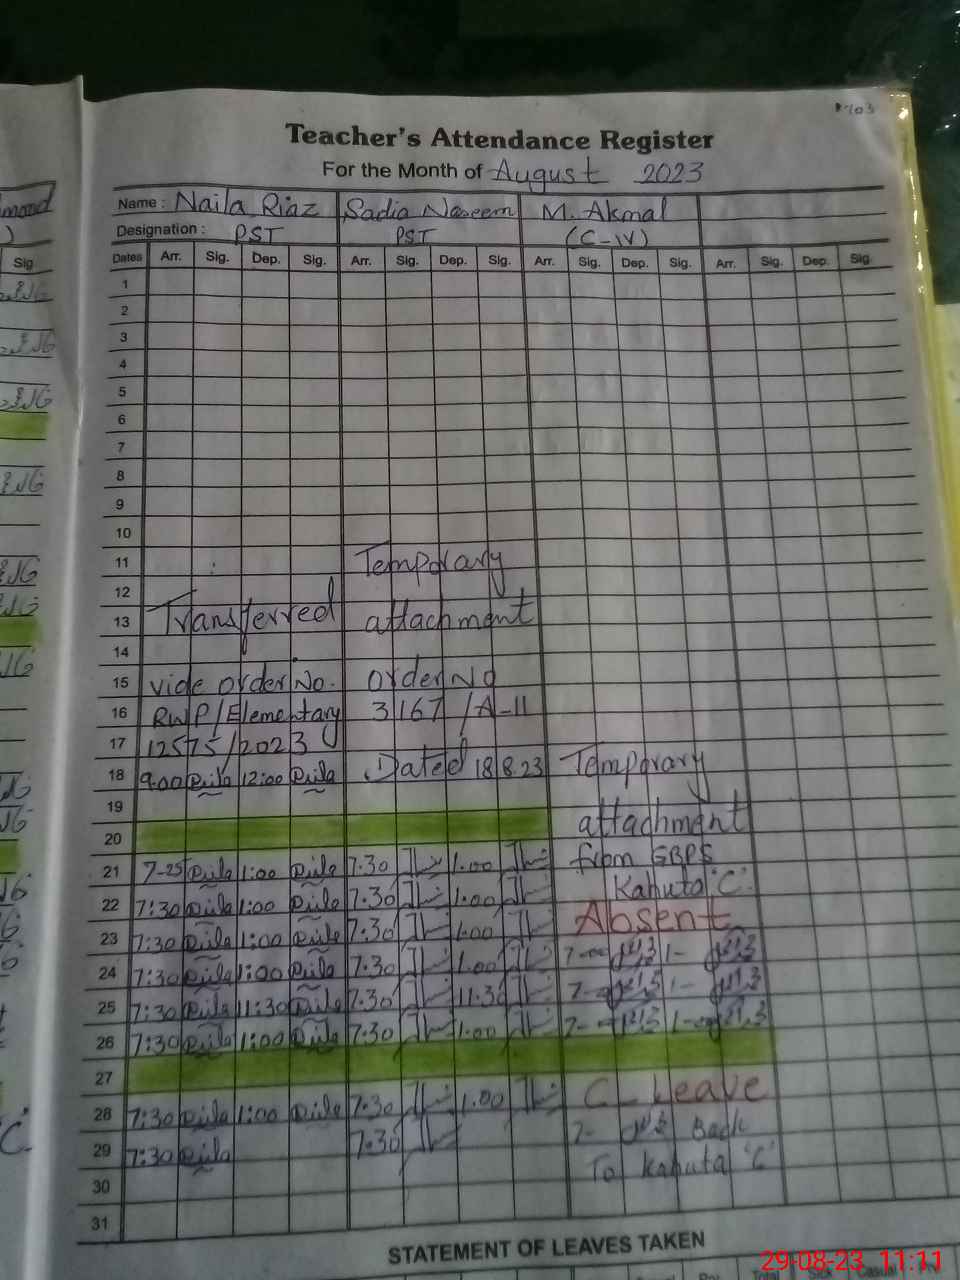 Teacher's Attendance Register
For the Month of August 2023
Name : Naila Riaz Sadia Naseem M. Akmal
Designation : PST PST (C-IV)
Dates Arr. Sig. Dep. Sig. Arr. Sig. Dep. Sig. Arr. Sig. Dep. Sig. Arr. Sig. Dep. Sig.
1
2
3
4
5
6
7
8
9
10
11 Temporary
12
13 Transferred attachment
14
15 vide order No. order No
16 RWP/Elementary 3167/A-II
17 12575/2023
18 9:00 12:00 Dated 18.8.23 Temporary
19
20 attachment
21 7-25 1:00 7:30 1.00 from GBPS
22 7:30 1:00 7:30 1.00 Kahuta 'C'.
23 7:30 1:00 7:30 1.00 Absent
24 7:30 1:00 7:30 1.00 7-00 1-
25 7:30 11:30 7:30 11:30 7- 1-
26 7:30 1:00 7:30 1:00 7- 1-
27
28 7:30 1:00 7:30 1.00 C_Leave
29 7:30 7:30 7- Back
30 To Kahuta 'C'
31
STATEMENT OF LEAVES TAKEN
29-08-23 11:11